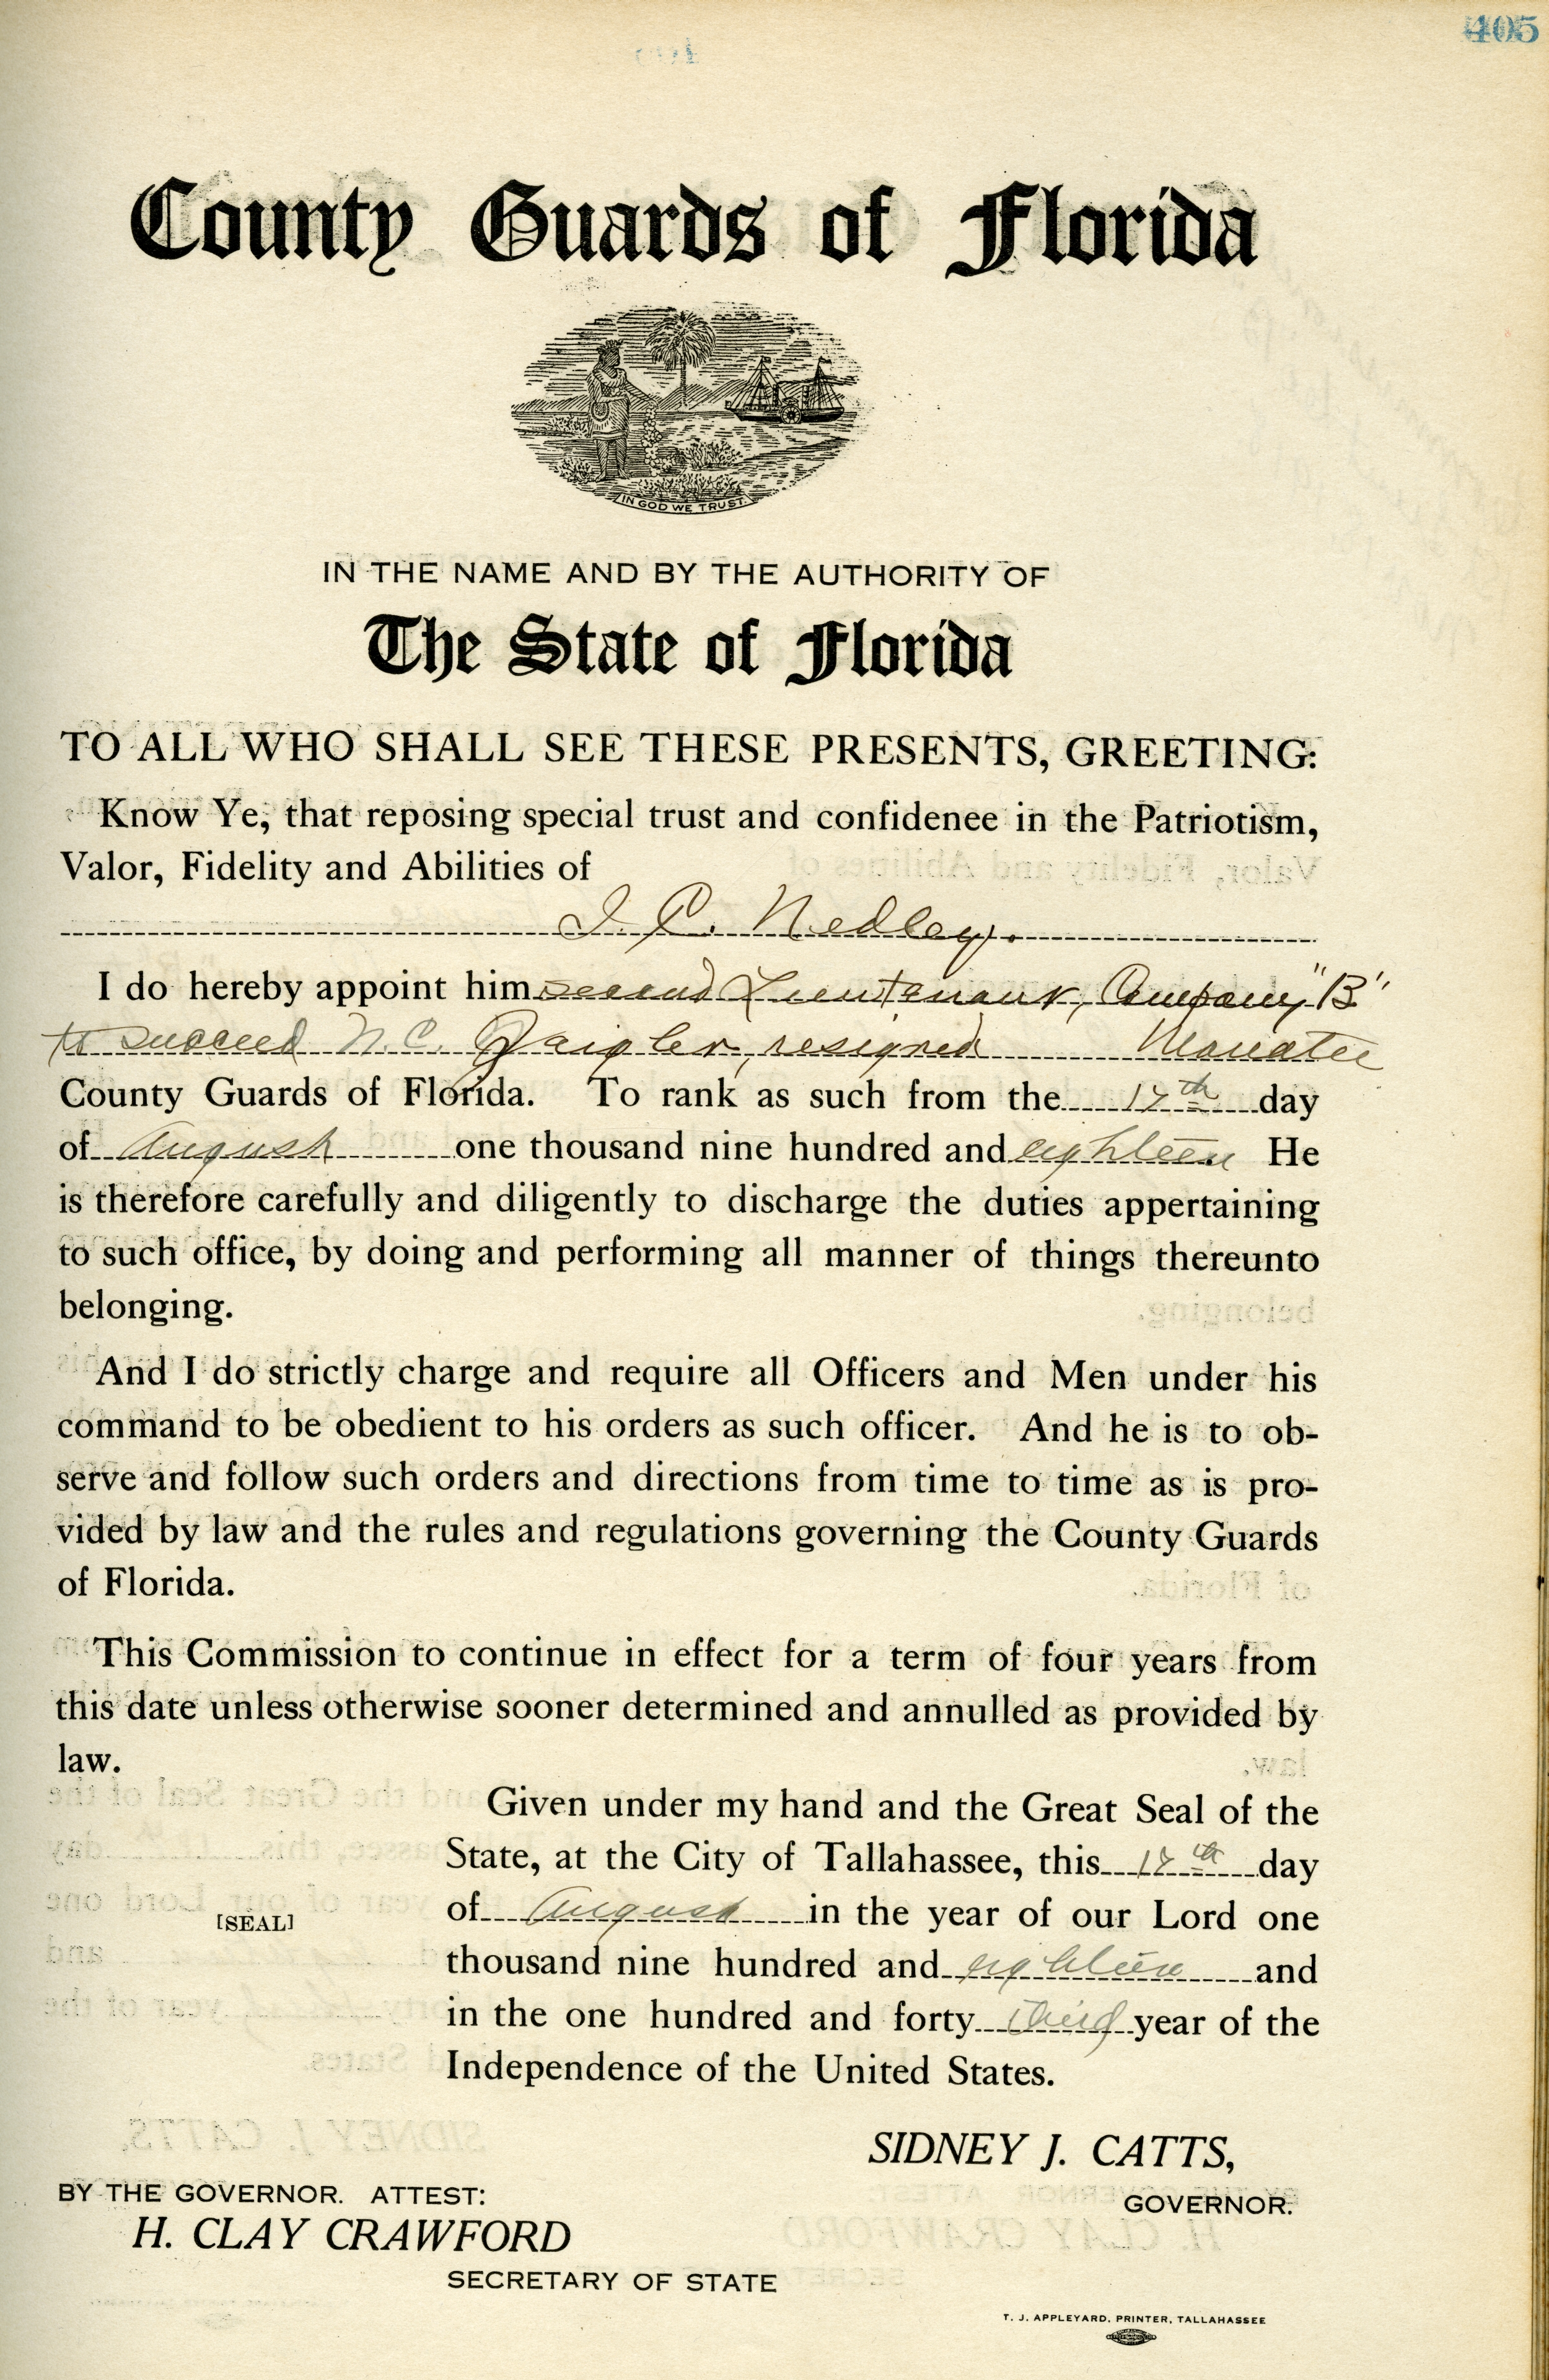 405
County Guards of Florida
IN GOD WE TRUST.
IN THE NAME AND BY THE AUTHORITY OF
The State of Florida
TO ALL WHO SHALL SEE THESE PRESENTS, GREETING:
Know Ye, that reposing special trust and confidenee in the Patriotism,
Valor, Fidelity and Abilities of
J. C. Nedley.
I do hereby appoint him second Lieutenant, Company "B"
to succeed N. C. resigned Manatee
County Guards of Florida. To rank as such from the 17th day
of August one thousand nine hundred and eighteen He
is therefore carefully and diligently to discharge the duties appertaining
to such office, by doing and performing all manner of things thereunto
belonging.
And I do strictly charge and require all Officers and Men under his
command to be obedient to his orders as such officer. And he is to ob-
serve and follow such orders and directions from time to time as is pro-
vided by law and the rules and regulations governing the County Guards
of Florida.
This Commission to continue in effect for a term of four years from
this date unless otherwise sooner determined and annulled as provided by
law.
Given under my hand and the Great Seal of the
State, at the City of Tallahassee, this 17th day
of August in the year of our Lord one
[SEAL]
thousand nine hundred and eighteen and
in the one hundred and forty third year of the
Independence of the United States.
SIDNEY J. CATTS,
GOVERNOR.
BY THE GOVERNOR. ATTEST:
H. CLAY CRAWFORD
SECRETARY OF STATE
T. J. APPLEYARD, PRINTER, TALLAHASSEE